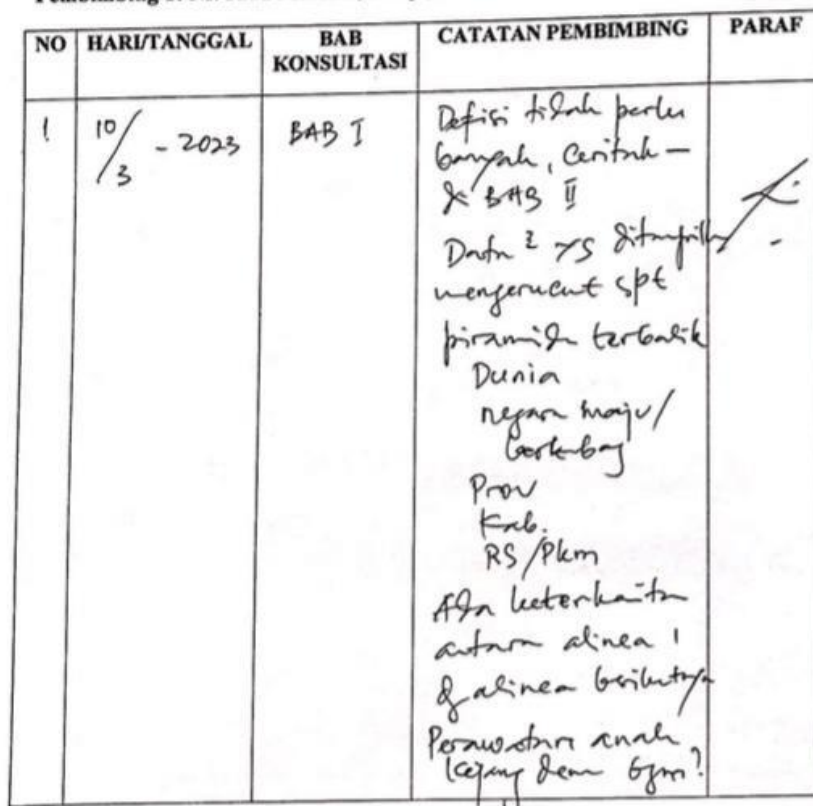 Pembimbing
NO HARI/TANGGAL BAB KONSULTASI CATATAN PEMBIMBING PARAF
1 10/3 - 2023 BAB I Defisi tidak perlu
banyak, Ceritak -
di BAB II
Data² yg ditampilkn
mengerucut spt
piramida terbalik
Dunia
negara maju/
berkembag
Prov
Kab.
RS/Pkm
Ada keterkaitan
antara alinea 1
& alinea berikutnya
Perawatan anak
kejang dem bgm?